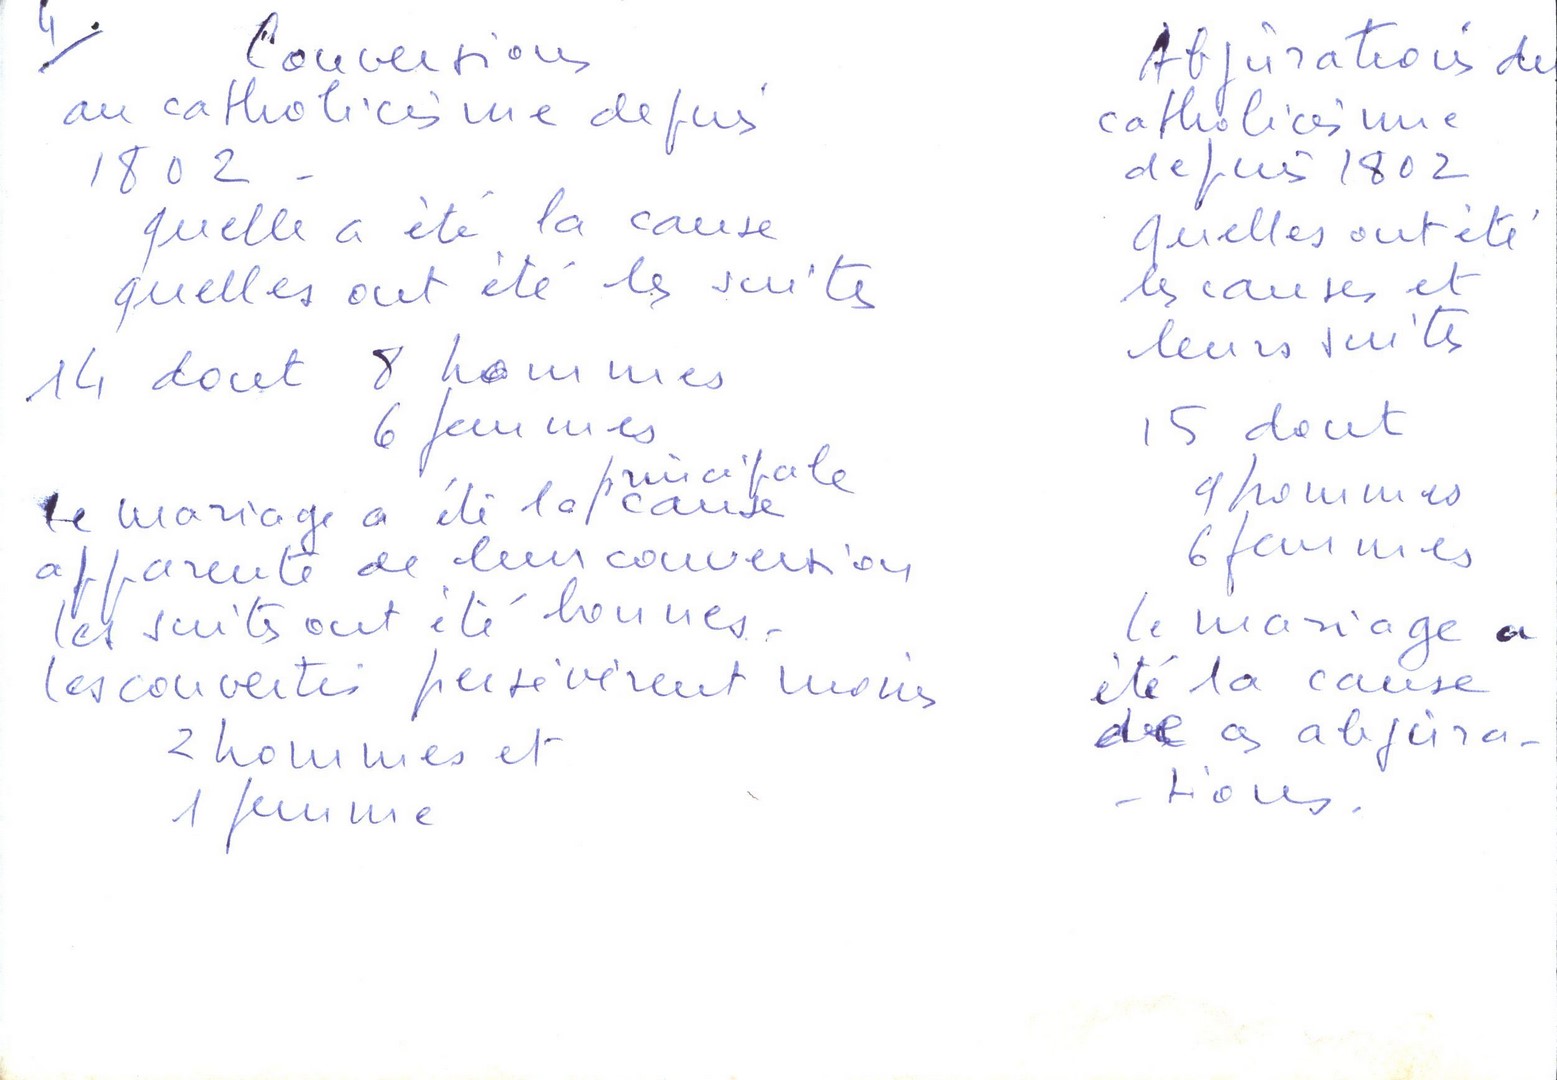 4/.
Conversions
au catholicisme depuis
1802 -
quelle a été la cause
quelles ont été les suites
14 dont 8 hommes
6 femmes
principale
Le mariage a été la / cause
apparente de leur conversion
les suites ont été bonnes.-
les convertis persévèrent moins
2 hommes et
1 femme
Abjurations du
catholicisme
depuis 1802
Quelles ont été
les causes et
leurs suites
15 dont
9 hommes
6 femmes
le mariage a
été la cause
de ces abjura-
-tions.